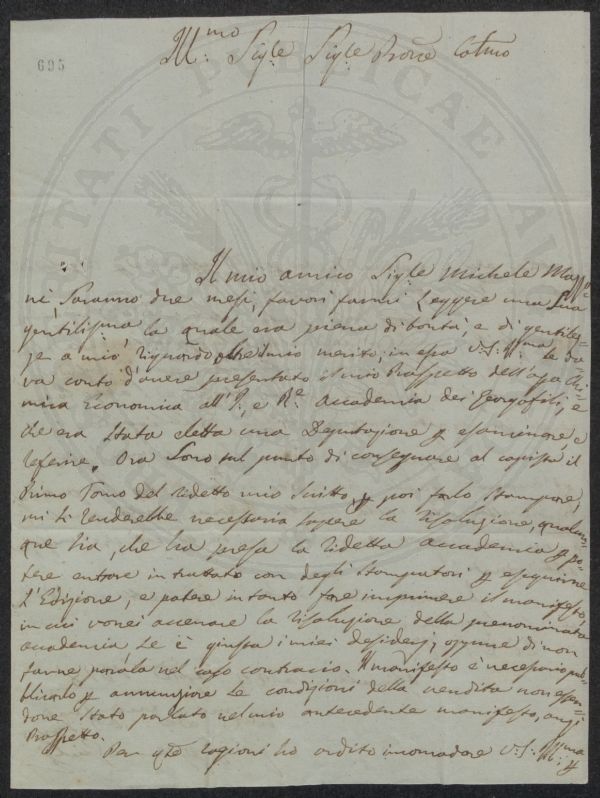 695
Ill.mo Sig.le Sig.le Prone Colmo
Il mio amico Sig.le Michele Mazzo=
ni, saranno due mesi, favorì farmi leggere una sua
gentilissima la quale era piena di bontà, e di gentilez=
ze a mio riguardo, oltre il mio merito; in essa V. S. Ill.ma le da=
va conto d'avere presentato il mio Prospetto dell'opa Chi=
mica Economica all'I. e R.e Accademia dei Georgofili, e
che era stata eletta una Deputazione p esaminare e
referire. Ora sono sul punto di consegnare al copista il
Primo Tomo del ridetto mio scritto, p poi farlo stampare,
mi si renderebbe necessario sapere la risoluzione, qualun=
que sia, che ha presa la ridetta Accademia p po=
tere entrare in trattato con degli Stampatori p eseguirne
l'Edizione, e potere intanto fare imprimere il manifesto
in cui vorrei accenare la risoluzione della prenominata
accademia se è giusta i miei desiderj; oppure di non
farne parola nel caso contrario. Il manifesto è necessario pub=
blicarlo p annunziare le condizioni della vendita non essen=
done stato parlato nel mio antecedente manifesto, anzi
Prospetto.
Per q.te ragioni ho ardito incomodare V. S. Ill.ma p